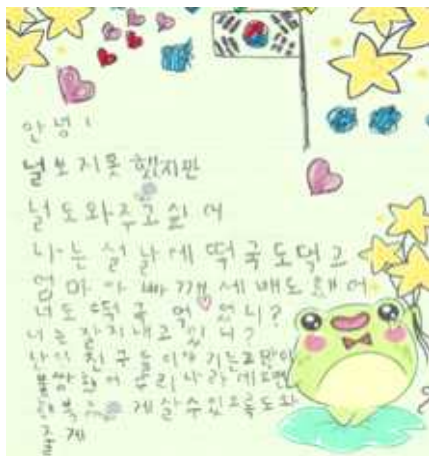 안녕!
널 보지 못 했지만
널 도와주고 싶 어
나는 설 날에 떡 국 도 먹 고
엄 마 아 빠 께 세 배도 했 어
너도 떡 국 먹 었 니?
너는 잘지내고 있 니?
친 구 들 이야 기 는
불쌍 했어 우리 나라 에 오면
행 복 하 게 살 수 있 으 록 도와
줄 게